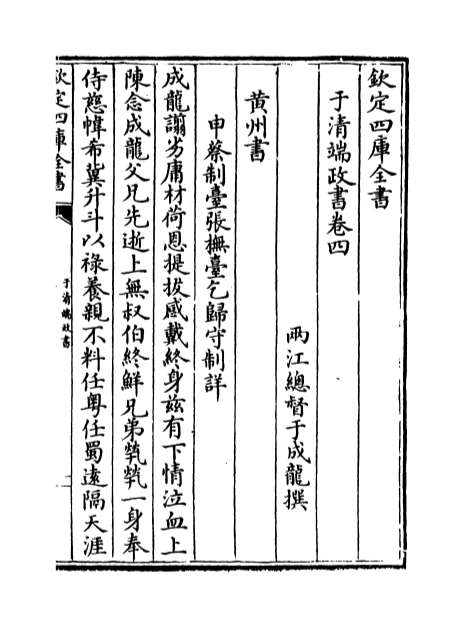 欽定四庫全書
于清端政書卷四
兩江總督于成龍撰
黄州書
申蔡制臺張撫臺乞歸守制詳
成龍謭劣庸材荷恩提拔感戴終身兹有下情泣血上
陳念成龍父兄先逝上無叔伯終鮮兄弟煢煢一身奉
侍慈幃布冀升斗以禄養親不料任粤任蜀遠隔天涯
欽定四庫全書
于清端政書
一